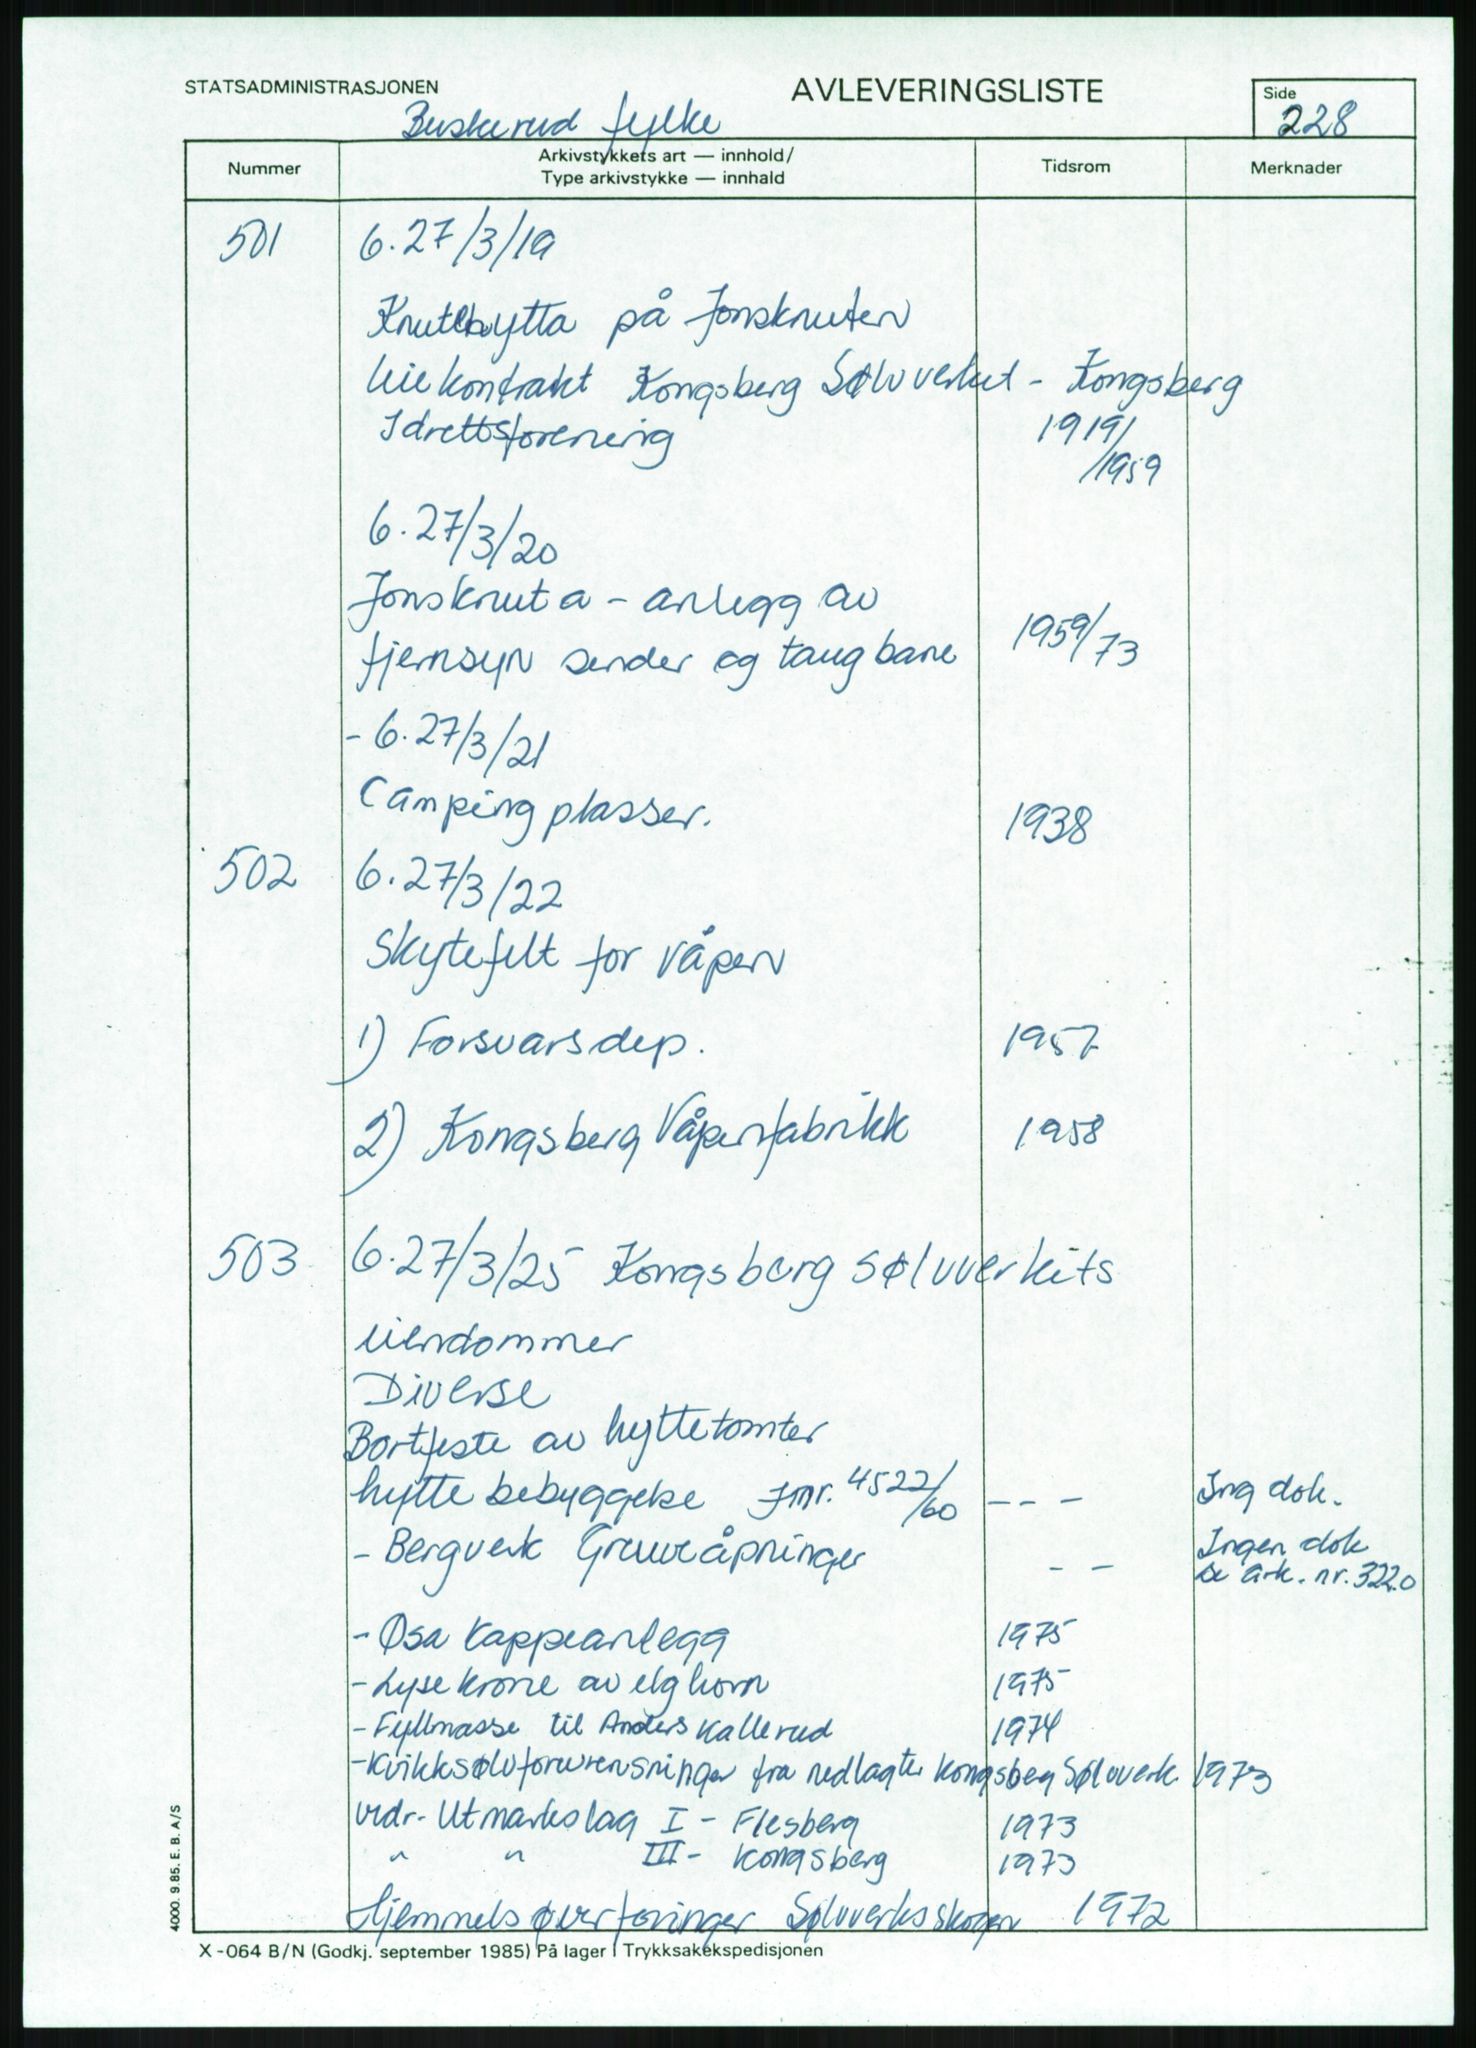 STATSADMINISTRASJONEN
AVLEVERINGSLISTE
Side
228
Buskerud fylke
Nummer
Arkivstykkets art — innhold/
Type arkivstykke — innhald
Tidsrom
Merknader
501 6.27/3/19
Knutehytta på Jonsknuten
leiekontrakt Kongsberg Sølvverket - Kongsberg
Idrettsforening 1919/
/1959
6.27/3/20
Jonsknuta - anlegg av
fjernsyn sender og taugbane 1959/73
- 6.27/3/21
Camping plasser. 1938
502 6.27/3/22
Skytefelt for våpen
1) Forsvarsdep. 1957
2) Kongsberg Våpenfabrikk 1958
503 6.27/3/25 Kongsberg sølvverkets
eiendommer
Diverse
Bortfeste av hyttetomter
hytte bebyggelse Jnr. 4522/60 - - - Ing dok.
- Bergverk Gruveåpninger - - Ingen dok
se ark. nr. 322.0
- Øsa kappeanlegg 1975
- Lyse krone av elghorn 1975
- Fyllmasse til Anders Kallerud 1974
- Kvikksølvforurensninger fra nedlagte Kongsberg Sølvverk 1973
vedr. Utmarkslag I - Flesberg 1973
" " III - Kongsberg 1973
Hjemmelsoverføringer Sølvverksskogen 1972
4000. 9.85. E. B. A/S
X-064 B/N (Godkj. september 1985) På lager i Trykksakekspedisjonen